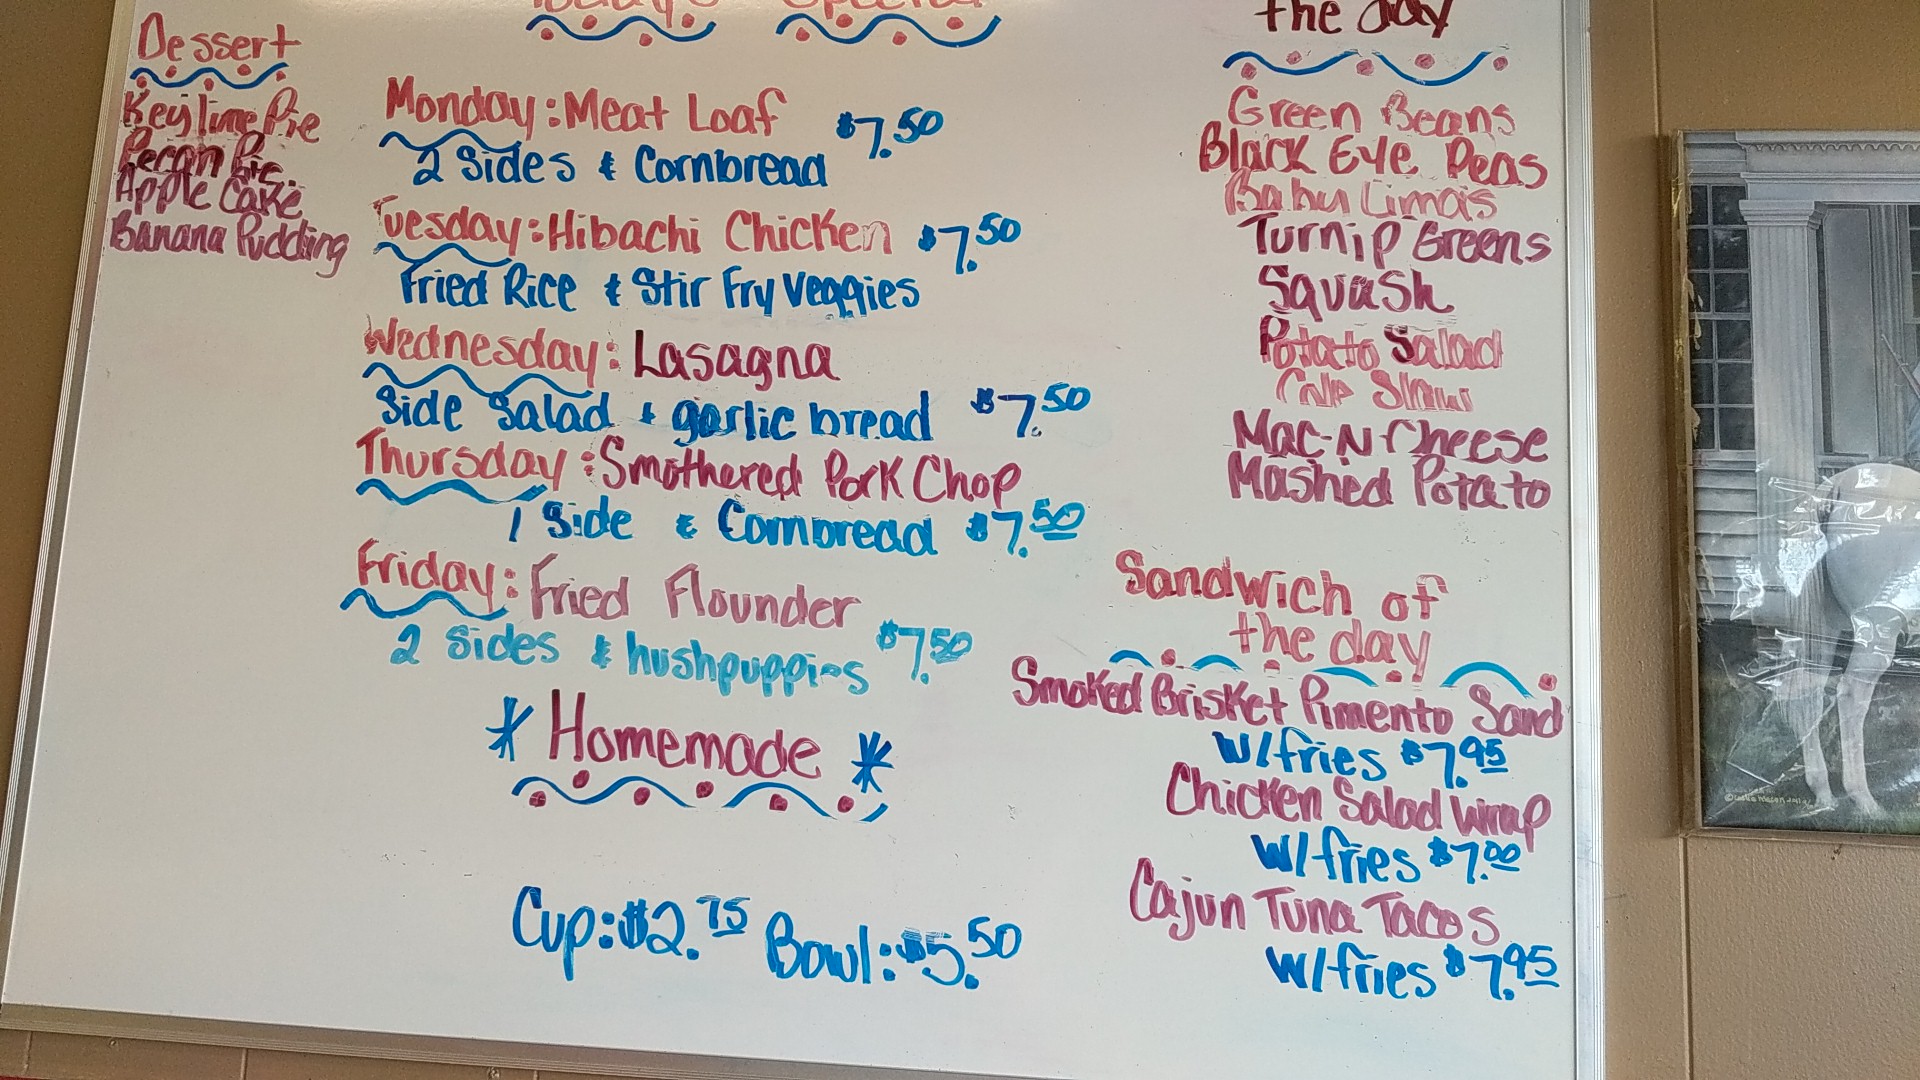 Dessert
Key lime Pie
Pecan Pie
Apple Cake
Banana Pudding
Today's Special
Monday: Meat Loaf $7.50
2 Sides & Cornbread
Tuesday: Hibachi Chicken $7.50
Fried Rice & Stir Fry Veggies
Wednesday: Lasagna
Side Salad & garlic bread $7.50
Thursday: Smothered Pork Chop
1 Side & Cornbread $7.50
Friday: Fried Flounder
2 Sides & hushpuppies $7.50
* Homemade *
Cup: $2.75 Bowl: $5.50
the day
Green Beans
Black Eye Peas
Baby Limas
Turnip Greens
Squash
Potato Salad
Cole Slaw
Mac-N-Cheese
Mashed Potato
Sandwich of
the day
Smoked Brisket Pimento Sand
W/fries $7.95
Chicken Salad Wrap
W/fries $7.00
Cajun Tuna Tacos
W/fries $7.95